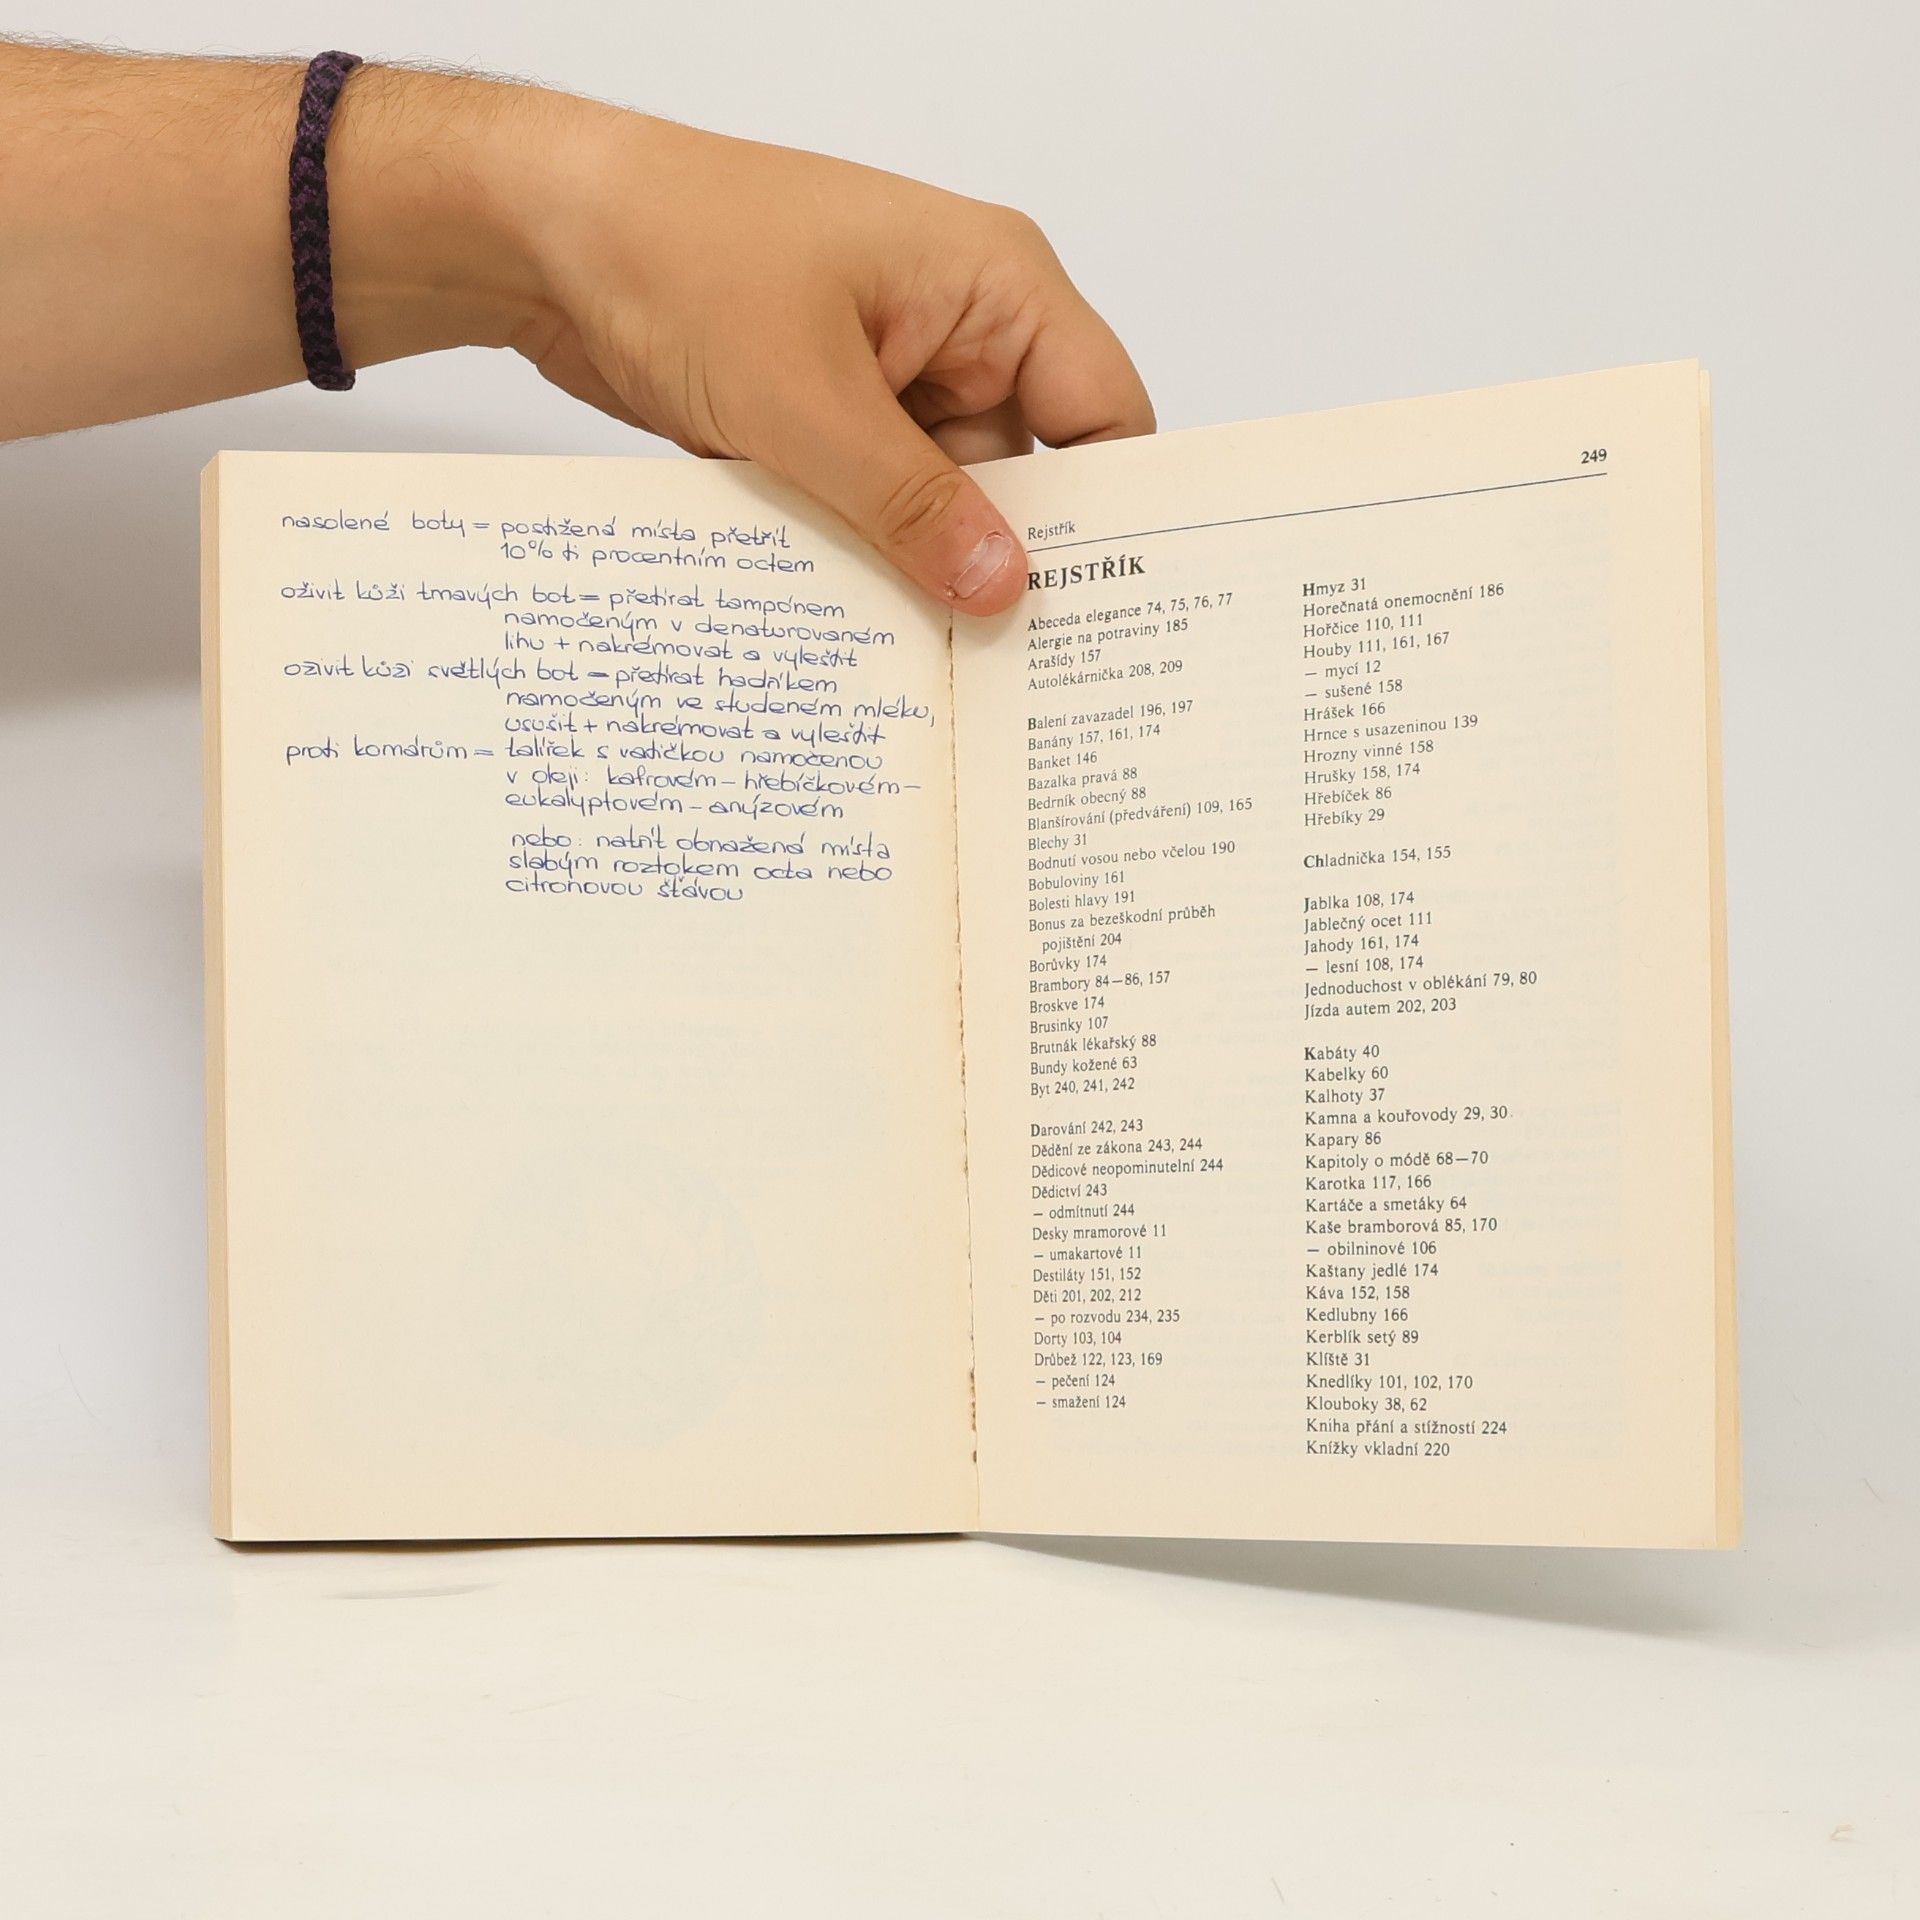 nasolené boty = postižená místa přetřít
10% ti procentním octem
oživit kůži tmavých bot = přetírat tampónem
namočeným v denaturovaném
lihu + nakrémovat a vyleštit
oživit kůži světlých bot = přetírat hadříkem
namočeným ve studeném mléku,
usušit + nakrémovat a vyleštit
proti komárům = talířek s vatičkou namočenou
v oleji: kafrovém - hřebíčkovém -
eukalyptovém - anýzovém
nebo: natřít obnažená místa
slabým roztokem octa nebo
citronovou šťávou
249
Rejstřík
REJSTŘÍK
Abeceda elegance 74, 75, 76, 77
Alergie na potraviny 185
Arašídy 157
Autolékárnička 208, 209
Balení zavazadel 196, 197
Banány 157, 161, 174
Banket 146
Bazalka pravá 88
Bedrník obecný 88
Blanšírování (předváření) 109, 165
Blechy 31
Bodnutí vosou nebo včelou 190
Bobuloviny 161
Bolesti hlavy 191
Bonus za bezeškodní průběh
pojištění 204
Borůvky 174
Brambory 84–86, 157
Broskve 174
Brusinky 107
Brutnák lékařský 88
Bundy kožené 63
Byt 240, 241, 242
Darování 242, 243
Dědění ze zákona 243, 244
Dědicové neopominutelní 244
Dědictví 243
– odmítnutí 244
Desky mramorové 11
– umakartové 11
Destiláty 151, 152
Děti 201, 202, 212
– po rozvodu 234, 235
Dorty 103, 104
Drůbež 122, 123, 169
– pečení 124
– smažení 124
Hmyz 31
Horečnatá onemocnění 186
Hořčice 110, 111
Houby 111, 161, 167
– mycí 12
– sušené 158
Hrášek 166
Hrnce s usazeninou 139
Hrozny vinné 158
Hrušky 158, 174
Hřebíček 86
Hřebíky 29
Chladnička 154, 155
Jablka 108, 174
Jablečný ocet 111
Jahody 161, 174
– lesní 108, 174
Jednoduchost v oblékání 79, 80
Jízda autem 202, 203
Kabáty 40
Kabelky 60
Kalhoty 37
Kamna a kouřovody 29, 30
Kapary 86
Kapitoly o módě 68–70
Karotka 117, 166
Kartáče a smetáky 64
Kaše bramborová 85, 170
– obilninové 106
Kaštany jedlé 174
Káva 152, 158
Kedlubny 166
Kerblík setý 89
Klíště 31
Knedlíky 101, 102, 170
Klouboky 38, 62
Kniha přání a stížností 224
Knížky vkladní 220